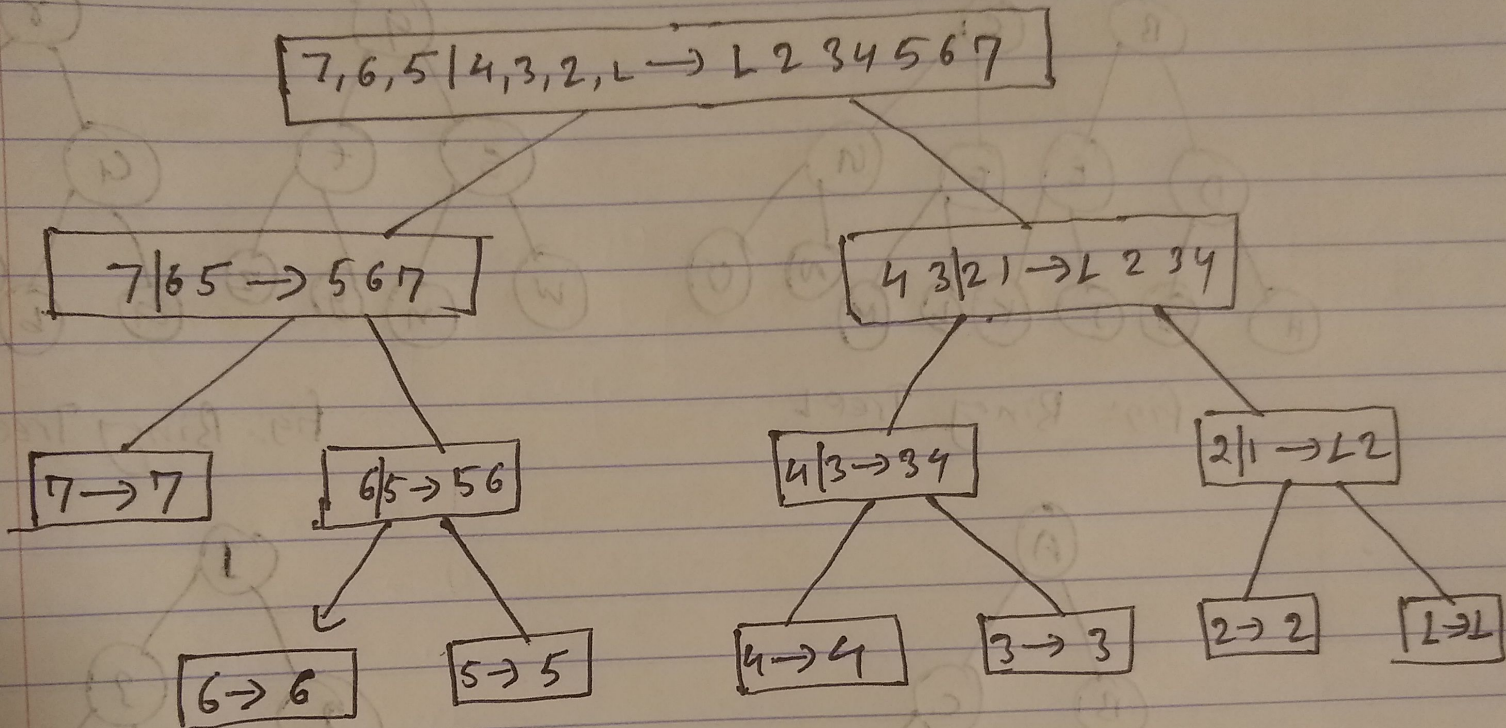 7, 6, 5 | 4, 3, 2, 1 → 1 2 3 4 5 6 7
7 | 6 5 → 5 6 7
4 3 | 2 1 → 1 2 3 4
7 → 7
6 | 5 → 5 6
4 | 3 → 3 4
2 | 1 → 1 2
6 → 6
5 → 5
4 → 4
3 → 3
2 → 2
1 → 1